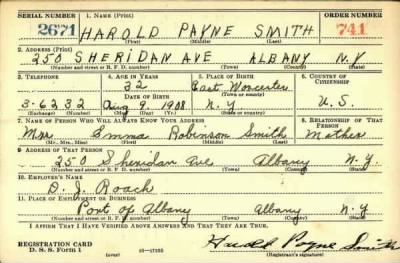 SERIAL NUMBER 1. NAME (Print) ORDER NUMBER
2671 HAROLD PAYNE SMITH 741
(First) (Middle) (Last)
2. ADDRESS (Print)
250 SHERIDAN AVE ALBANY N.Y
(Number and street or R. F. D. number) (Town) (County) (State)
3. TELEPHONE 4. AGE IN YEARS 5. PLACE OF BIRTH 6. COUNTRY OF CITIZENSHIP
32 East Worcester
DATE OF BIRTH (Town or county)
3-6232 Aug 9. 1908 N.Y U.S.
(Exchange) (Number) (Mo.) (Day) (Yr.) (State or country)
7. NAME OF PERSON WHO WILL ALWAYS KNOW YOUR ADDRESS 8. RELATIONSHIP OF THAT PERSON
Mrs Emma Robinson Smith Mother
(Mr., Mrs., Miss) (First) (Middle) (Last)
9. ADDRESS OF THAT PERSON
250 Sheridan Ave Albany N.Y.
(Number and street or R. F. D. number) (Town) (County) (State)
10. EMPLOYER'S NAME
D. J. Roach
11. PLACE OF EMPLOYMENT OR BUSINESS
Port of Albany Albany N.Y
(Number and street or R. F. D. number) (Town) (County) (State)
I AFFIRM THAT I HAVE VERIFIED ABOVE ANSWERS AND THAT THEY ARE TRUE.
REGISTRATION CARD
D. S. S. Form 1 (over) Harold Payne Smith
(Registrant's signature)